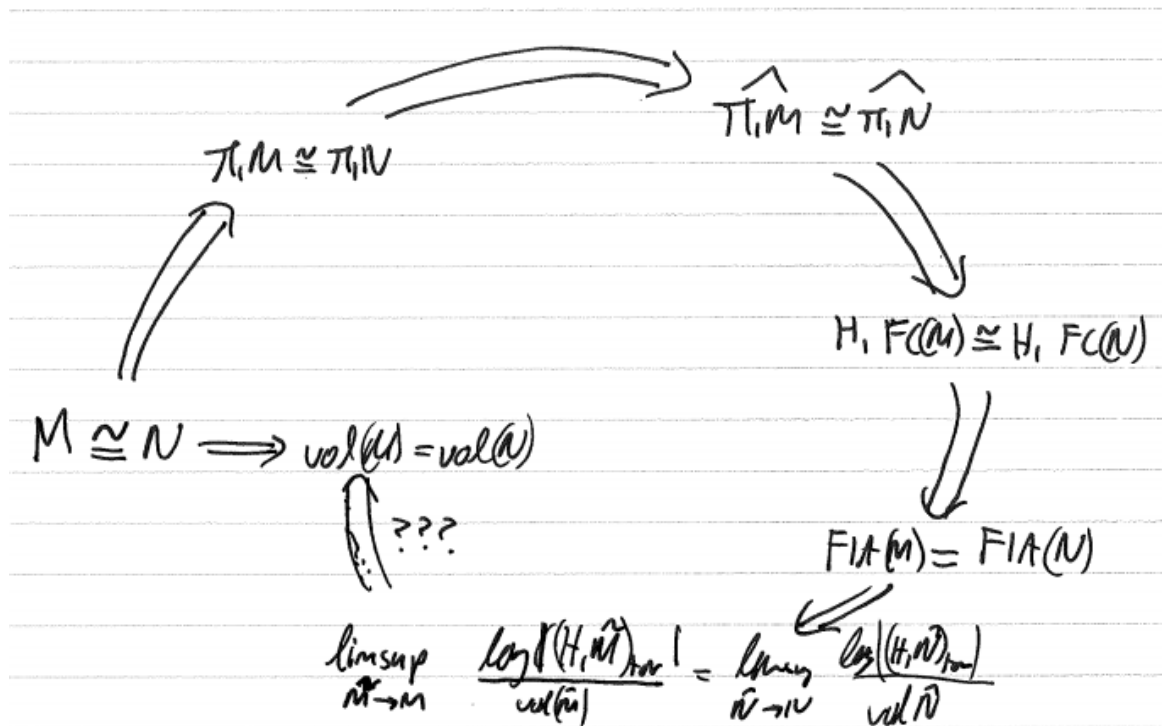 π₁M ≅ π₁N
\widehat{π₁M} ≅ \widehat{π₁N}
H₁ FC(M) ≅ H₁ FC(N)
M ≅ N ⟹ vol(M) = vol(N)
???
FIA(M) = FIA(N)
limsup_{M̃→M} log|(H₁M̃)_{tor}| / vol(M̃) = limsup_{Ñ→N} log|(H₁Ñ)_{tor}| / vol Ñ